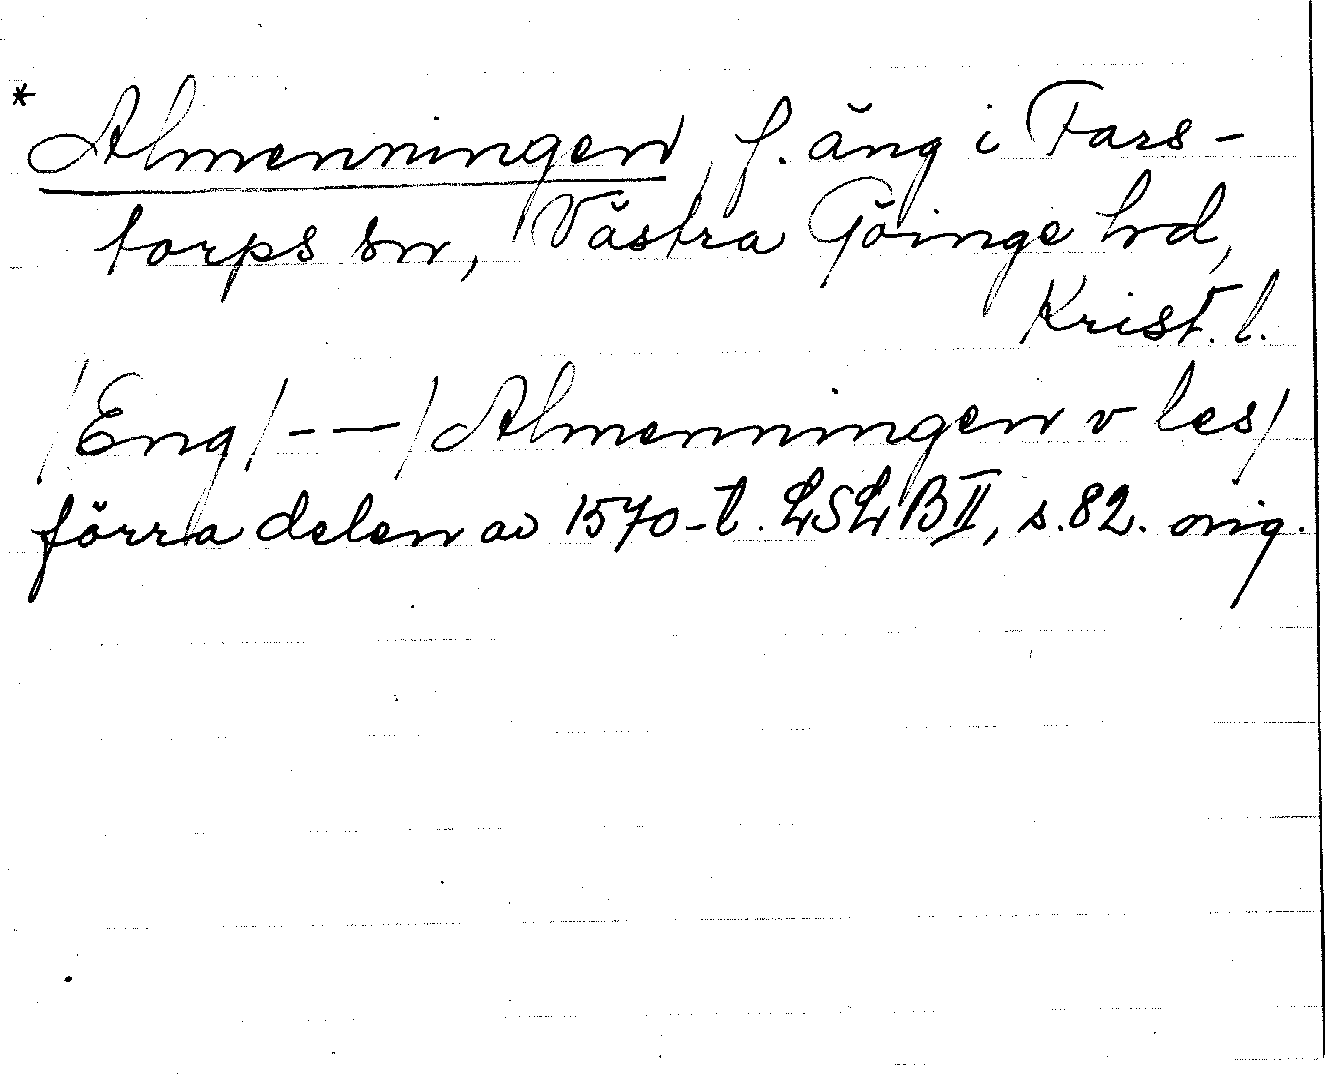 * Almenningen, f. äng i Fars-
torps sn, Västra Göinge hd,
Krist. l.
/Eng/ - — / Almenningen v les/
förra delen av 1570-t. LSLBII, s. 82. orig.